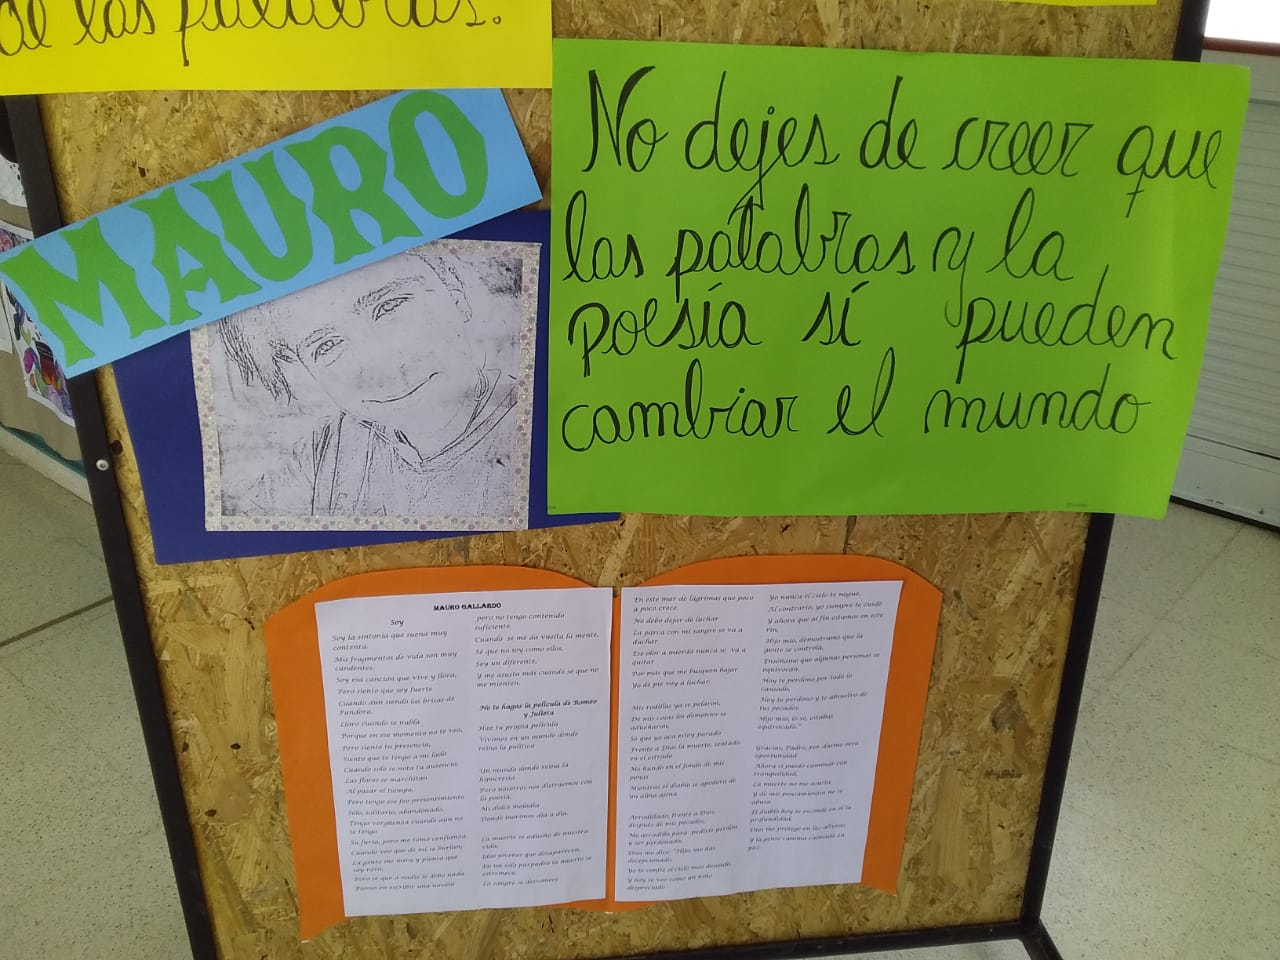 de las palabras.
MAURO
No dejes de creer que
las palabras y la
poesía sí pueden
cambiar el mundo
MAURO GALLARDO
Soy
Soy la sintonía que suena muy
contenta,
Mis fragmentos de vida son muy
candentes.
Soy esa canción que vive y llora,
Pero siento que soy fuerte
Cuando aun siendo las brisas de
Pandora.
Lloro cuando se nubla
Porque en ese momento no te veo,
Pero siento tu presencia,
Siento que te tengo a mi lado
Cuando solo se nota tu ausencia.
Las flores se marchitan
Al pasar el tiempo,
Pero tengo ese feo presentimiento
Solo, solitario, abandonado,
Tengo vergüenza cuando aun no
te tengo
Su furia, pero me tomo confianza.
Cuando veo que de mi se burlan,
La gente me mira y piensa que
soy raro,
Pero sé que a nadie le debo nada
Pienso en escribir una novela
pero no tengo contenido
suficiente.
Cuando se me da vuelta la mente,
Sé que no soy como ellos,
Soy un diferente,
Y me asusta más cuando sé que no
me mienten.
No te hagas la película de Romeo
y Julieta
Haz tu propia película
Vivimos en un mundo donde
reina la política
Un mundo donde reina la
hipocresía
Pero nosotros nos distraemos con
la poesía,
Mi dulce melodía
Donde morimos día a día.
La muerte se adueña de nuestra
vida,
Ideas jóvenes que desaparecen,
En un solo parpadeo la muerte se
estremece,
La sangre se desvanece
En este mar de lágrimas que poco
a poco crece.
No debo dejar de luchar
La parca con mi sangre se va a
duchar
Ese olor a mierda nunca se va a
quitar
Por más que me busquen bajar
Yo de pie voy a luchar.
Mis rodillas ya se pelaron,
De mis cosas los demonios se
adueñaron,
Sé que yo acá estoy parado
Frente a Dios la muerte, sentado
en el estrado
Me hundo en el fondo de mis
penas
Mientras el diablo se apodera de
un alma ajena.
Arrodillado, frente a Dios
después de mis pecados,
Me arrodillo para pedirle perdón
y ser perdonado,
Dios me dice: "Hijo, no has
decepcionado,
Yo te confié el cielo mas deseado,
Y hoy te veo como un niño
despreciado
Yo nunca el cielo te negué,
Al contrario, yo siempre te cuidé
Y ahora que al fin estamos en este
fin,
Hijo mío, demostrame que la
gente se controla,
Diséñame que algunas personas se
equivocan.
Hoy te perdono por todo lo
causado,
Hoy te perdono y te absuelvo de
tus pecados.
Hijo mío, lo sé, estabas
equivocado."
Gracias, Padre, por darme otra
oportunidad
Ahora si puedo caminar con
tranquilidad,
La muerte no me asusta
Y de mis pensamientos no se
abusa.
El diablo hoy se esconde en el la
profundidad,
Dios me protege en las alturas
Y la gente camina calmada en
paz.